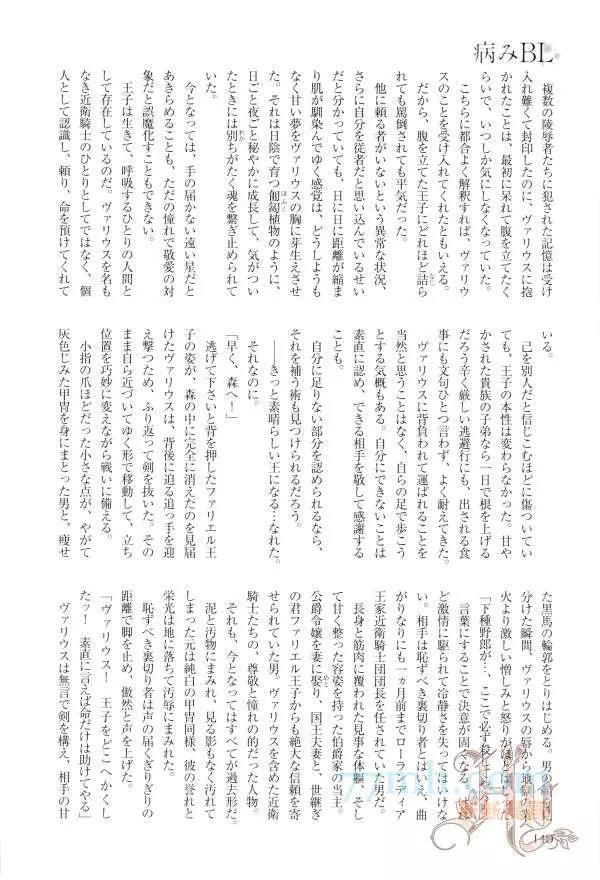 病みBL
複数の陵辱者たちに犯された記憶は受け
入れ難くて封印したのに、ヴァリウスに抱
かれたことは、最初に呆れて腹を立てたく
らいで、いつしか気にしなくなっていた。
こちらに都合よく解釈すれば、ヴァリウ
スのことを受け入れてくれたともいえる。
だから、腹を立てた王子にどれほど詰ら
れても罵倒されても平気だった。
他に頼る者がいないという異常な状況、
さらに自分を従者だと思い込んでいるせい
だと分かっていても、日に日に距離が縮ま
り肌が馴染んでゆく感覚は、どうしようも
なく甘い夢をヴァリウスの胸に芽生えさせ
た。それは日陰で育つ匍匐植物のように、
日ごと夜ごと秘やかに成長して、気がつい
たときには別ちがたく魂を繋ぎ止められて
いた。
今となっては、手の届かない遠い星だと
あきらめることも、ただの憧れで敬愛の対
象だと誤魔化すこともできない。
王子は生きて、呼吸するひとりの人間と
して存在しているのだ。ヴァリウスを名も
なき近衛騎士のひとりとしてではなく、個
人として認識し、頼り、命を預けてくれて
いる。
己を別人だと信じこむほどに傷ついてい
ても、王子の本性は変わらなかった。甘や
かされた貴族の子弟なら一日で根を上げる
だろう辛く厳しい逃避行にも、出される食
事にも文句ひとつ言わず、よく耐えてきた。
ヴァリウスに背負われて運ばれることを
当然と思うことはなく、自らの足で歩こう
とする気概もある。自分にできないことは
素直に認め、できる相手を敬して感謝する
ことも。
自分に足りない部分を認められるなら、
それを補う術も見つけられるだろう。
――きっと素晴らしい王になる…なれた。
それなのに。
「早く、森へ!」
逃げて下さいと背を押したファリエル王
子の姿が、森の中に完全に消えたのを見届
けたヴァリウスは、背後に迫る追っ手を迎
え撃つため、ふり返って剣を抜いた。その
まま自ら近づいてゆく形で移動して、立ち
位置を巧妙に変えながら戦いに備える。
小指の爪ほどだった小さな点が、やがて
灰色じみた甲冑を身にまとった男と、痩せ
た黒馬の輪郭をとりはじめる。男の
分けた瞬間、ヴァリウスの唇から地獄の
火より激しい憎しみと怒りがほとばし
「下種野郎が…、ここで必ず殺
言葉にすることで決意が固くなる。
ど激情に駆られて冷静さを失ってはいけな
い。相手は恥ずべき裏切り者とはいえ、曲
がりなりにも一ヵ月前までローラ ディア
王家近衛騎士団団長を任されていた男だ。
長身と筋肉に覆われた見事な体躯、そし
て甘く整った容姿を持った伯爵家の当主。
公爵令嬢を妻に娶り、国王夫妻と、世継ぎ
の君ファリエル王子からも絶大な信頼を寄
せられていた男。ヴァリウスを含めた近衛
騎士たちの、尊敬と憧れの的だった人物。
それも、今となってはすべてが過去形だ。
泥と汚物にまみれ、見る影もなく汚れて
しまった元は純白の甲冑同様、彼の誉れと
栄光は地に落ちて汚辱にまみれた。
恥ずべき裏切り者は声の届くぎりぎりの
距離で脚を止め、傲然と声を上げた。
「ヴァリウス! 王子をどこへかくし
たッ! 素直に言えば命だけは助けてやる」
ヴァリウスは無言で剣を構え、相手の甘